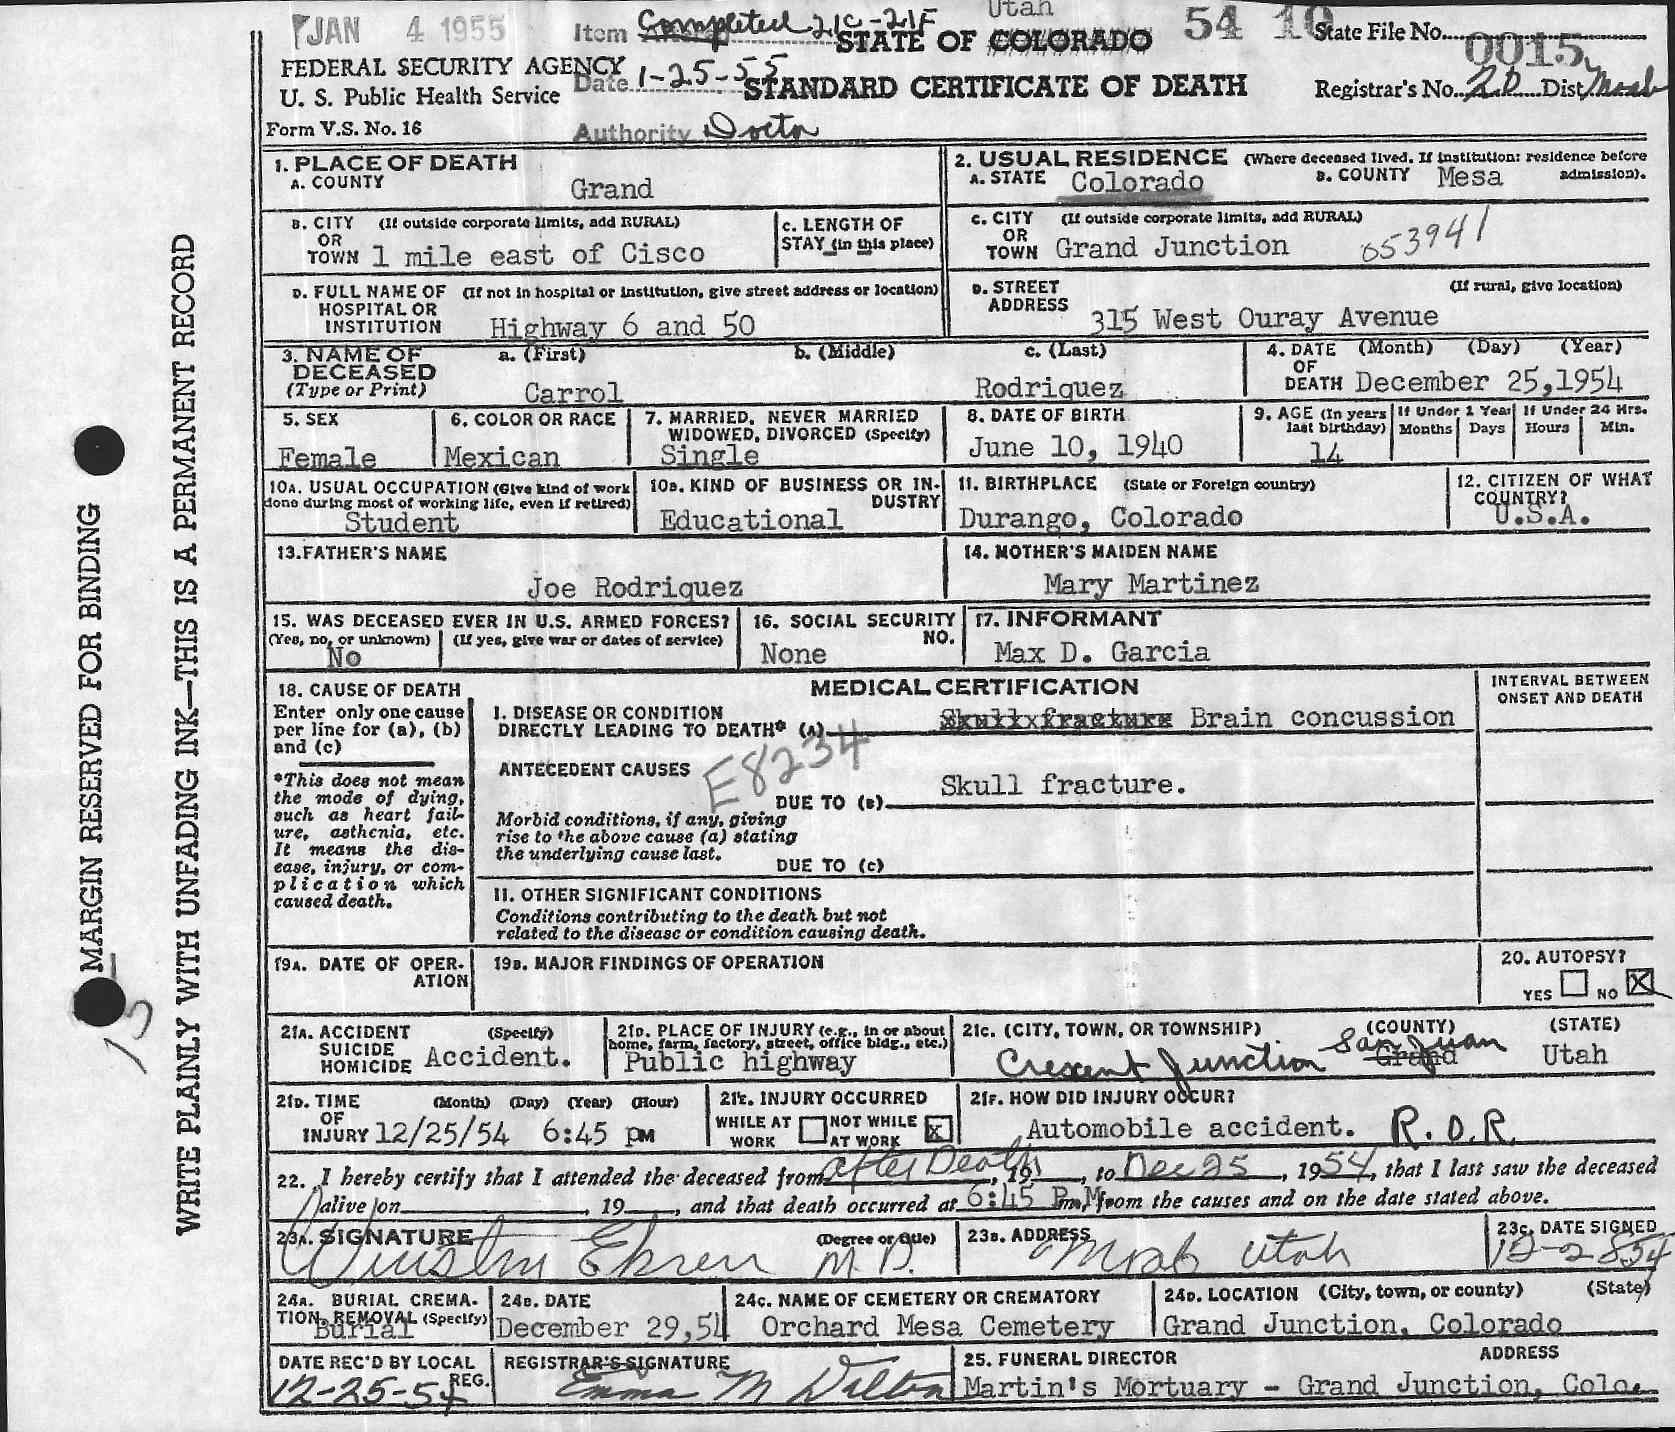 JAN 4 1955
Item Completed 21C-21F
Utah
STATE OF COLORADO
54 10
State File No. 0015
FEDERAL SECURITY AGENCY
U. S. Public Health Service
Date 1-25-55
STANDARD CERTIFICATE OF DEATH
Registrar's No. 20 Dist Moab
Form V.S. No. 16
Authority Doctor
1. PLACE OF DEATH
A. COUNTY Grand
2. USUAL RESIDENCE (Where deceased lived. If institution: residence before admission).
A. STATE Colorado B. COUNTY Mesa
B. CITY (If outside corporate limits, add RURAL)
OR
TOWN 1 mile east of Cisco
C. LENGTH OF
STAY (in this place)
C. CITY (If outside corporate limits, add RURAL)
OR
TOWN Grand Junction 053941
D. FULL NAME OF (If not in hospital or institution, give street address or location)
HOSPITAL OR
INSTITUTION Highway 6 and 50
D. STREET (If rural, give location)
ADDRESS 315 West Ouray Avenue
3. NAME OF a. (First) b. (Middle) c. (Last)
DECEASED
(Type or Print) Carrol Rodriquez
4. DATE (Month) (Day) (Year)
OF
DEATH December 25,1954
5. SEX
Female
6. COLOR OR RACE
Mexican
7. MARRIED, NEVER MARRIED
WIDOWED, DIVORCED (Specify)
Single
8. DATE OF BIRTH
June 10, 1940
9. AGE (In years last birthday)
14
If Under 1 Year
Months Days
If Under 24 Hrs.
Hours Min.
10A. USUAL OCCUPATION (Give kind of work
done during most of working life, even if retired)
Student
10B. KIND OF BUSINESS OR INDUSTRY
Educational
11. BIRTHPLACE (State or Foreign country)
Durango, Colorado
12. CITIZEN OF WHAT
COUNTRY?
U.S.A.
13.FATHER'S NAME
Joe Rodriquez
14. MOTHER'S MAIDEN NAME
Mary Martinez
15. WAS DECEASED EVER IN U.S. ARMED FORCES?
(Yes, no, or unknown) (If yes, give war or dates of service)
No
16. SOCIAL SECURITY
NO.
None
17. INFORMANT
Max D. Garcia
18. CAUSE OF DEATH
Enter only one cause
per line for (a), (b)
and (c)
*This does not mean
the mode of dying,
such as heart fail-
ure, asthenia, etc.
It means the dis-
ease, injury, or com-
plication which
caused death.
MEDICAL CERTIFICATION
INTERVAL BETWEEN
ONSET AND DEATH
I. DISEASE OR CONDITION
DIRECTLY LEADING TO DEATH* (A) Skull fracture Brain concussion
E8234
ANTECEDENT CAUSES
DUE TO (B) Skull fracture.
Morbid conditions, if any, giving
rise to the above cause (a) stating
the underlying cause last.
DUE TO (C)
II. OTHER SIGNIFICANT CONDITIONS
Conditions contributing to the death but not
related to the disease or condition causing death.
19A. DATE OF OPER-
ATION
19B. MAJOR FINDINGS OF OPERATION
20. AUTOPSY?
YES NO X
21A. ACCIDENT (Specify)
SUICIDE
HOMICIDE Accident.
21B. PLACE OF INJURY (e.g., in or about
home, farm, factory, street, office bldg., etc.)
Public highway
21C. (CITY, TOWN, OR TOWNSHIP) (COUNTY) (STATE)
Crescent Junction San Juan Grand Utah
21D. TIME (Month) (Day) (Year) (Hour)
OF
INJURY 12/25/54 6:45 pm
21E. INJURY OCCURRED
WHILE AT WORK NOT WHILE AT WORK X
21F. HOW DID INJURY OCCUR?
Automobile accident. R.O.R.
22. I hereby certify that I attended the deceased from after Death, 19, to Dec 25, 1954, that I last saw the deceased
alive on , 19 , and that death occurred at 6:45 Pm, from the causes and on the date stated above.
23A. SIGNATURE (Degree or title)
M.D.
23B. ADDRESS
Moab Utah
23C. DATE SIGNED
12-28-54
24A. BURIAL CREMA-
TION, REMOVAL (Specify)
Burial
24B. DATE
December 29,54
24C. NAME OF CEMETERY OR CREMATORY
Orchard Mesa Cemetery
24D. LOCATION (City, town, or county) (State)
Grand Junction, Colorado
DATE REC'D BY LOCAL
REG.
12-25-54
REGISTRAR'S SIGNATURE
Emma M Dalton
25. FUNERAL DIRECTOR ADDRESS
Martin's Mortuary - Grand Junction, Colo.
MARGIN RESERVED FOR BINDING
WRITE PLAINLY WITH UNFADING INK—THIS IS A PERMANENT RECORD